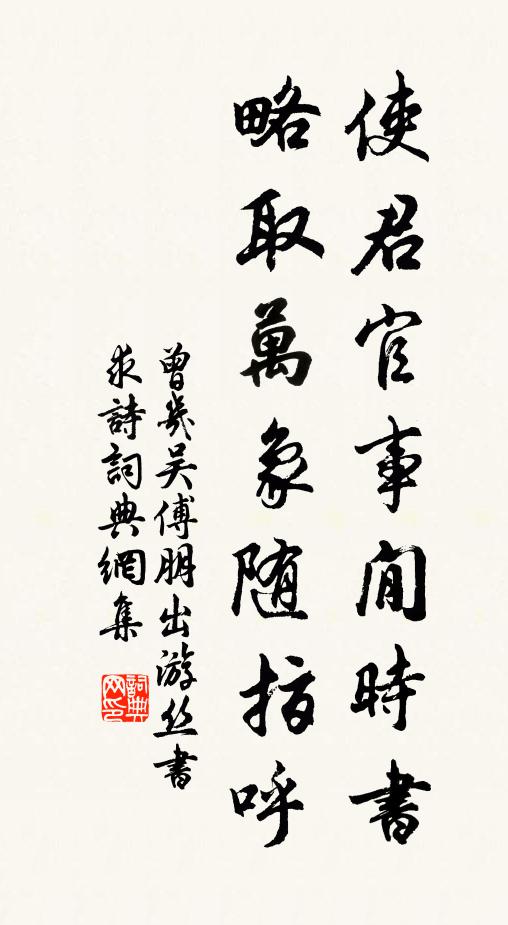 使君官事閒時書
略取萬象随指呼
曾幾吴傅朋出游丝書
求詩詞典網集
詞典网印